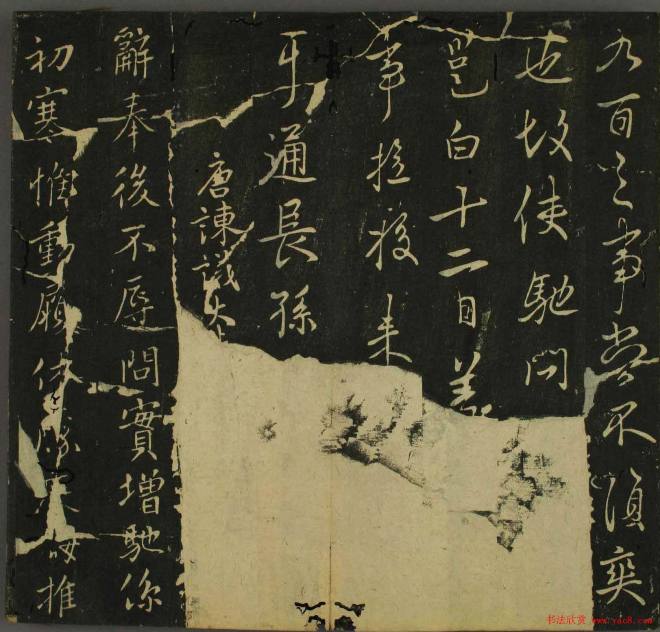 九百之事當不須奕
也故使馳問
邕白十二日
事投来
平通長孫
唐諫議大
辭奉後不辱問實增馳係
初寒惟動履休勝寒每推
书法欣赏 www.yac8.com